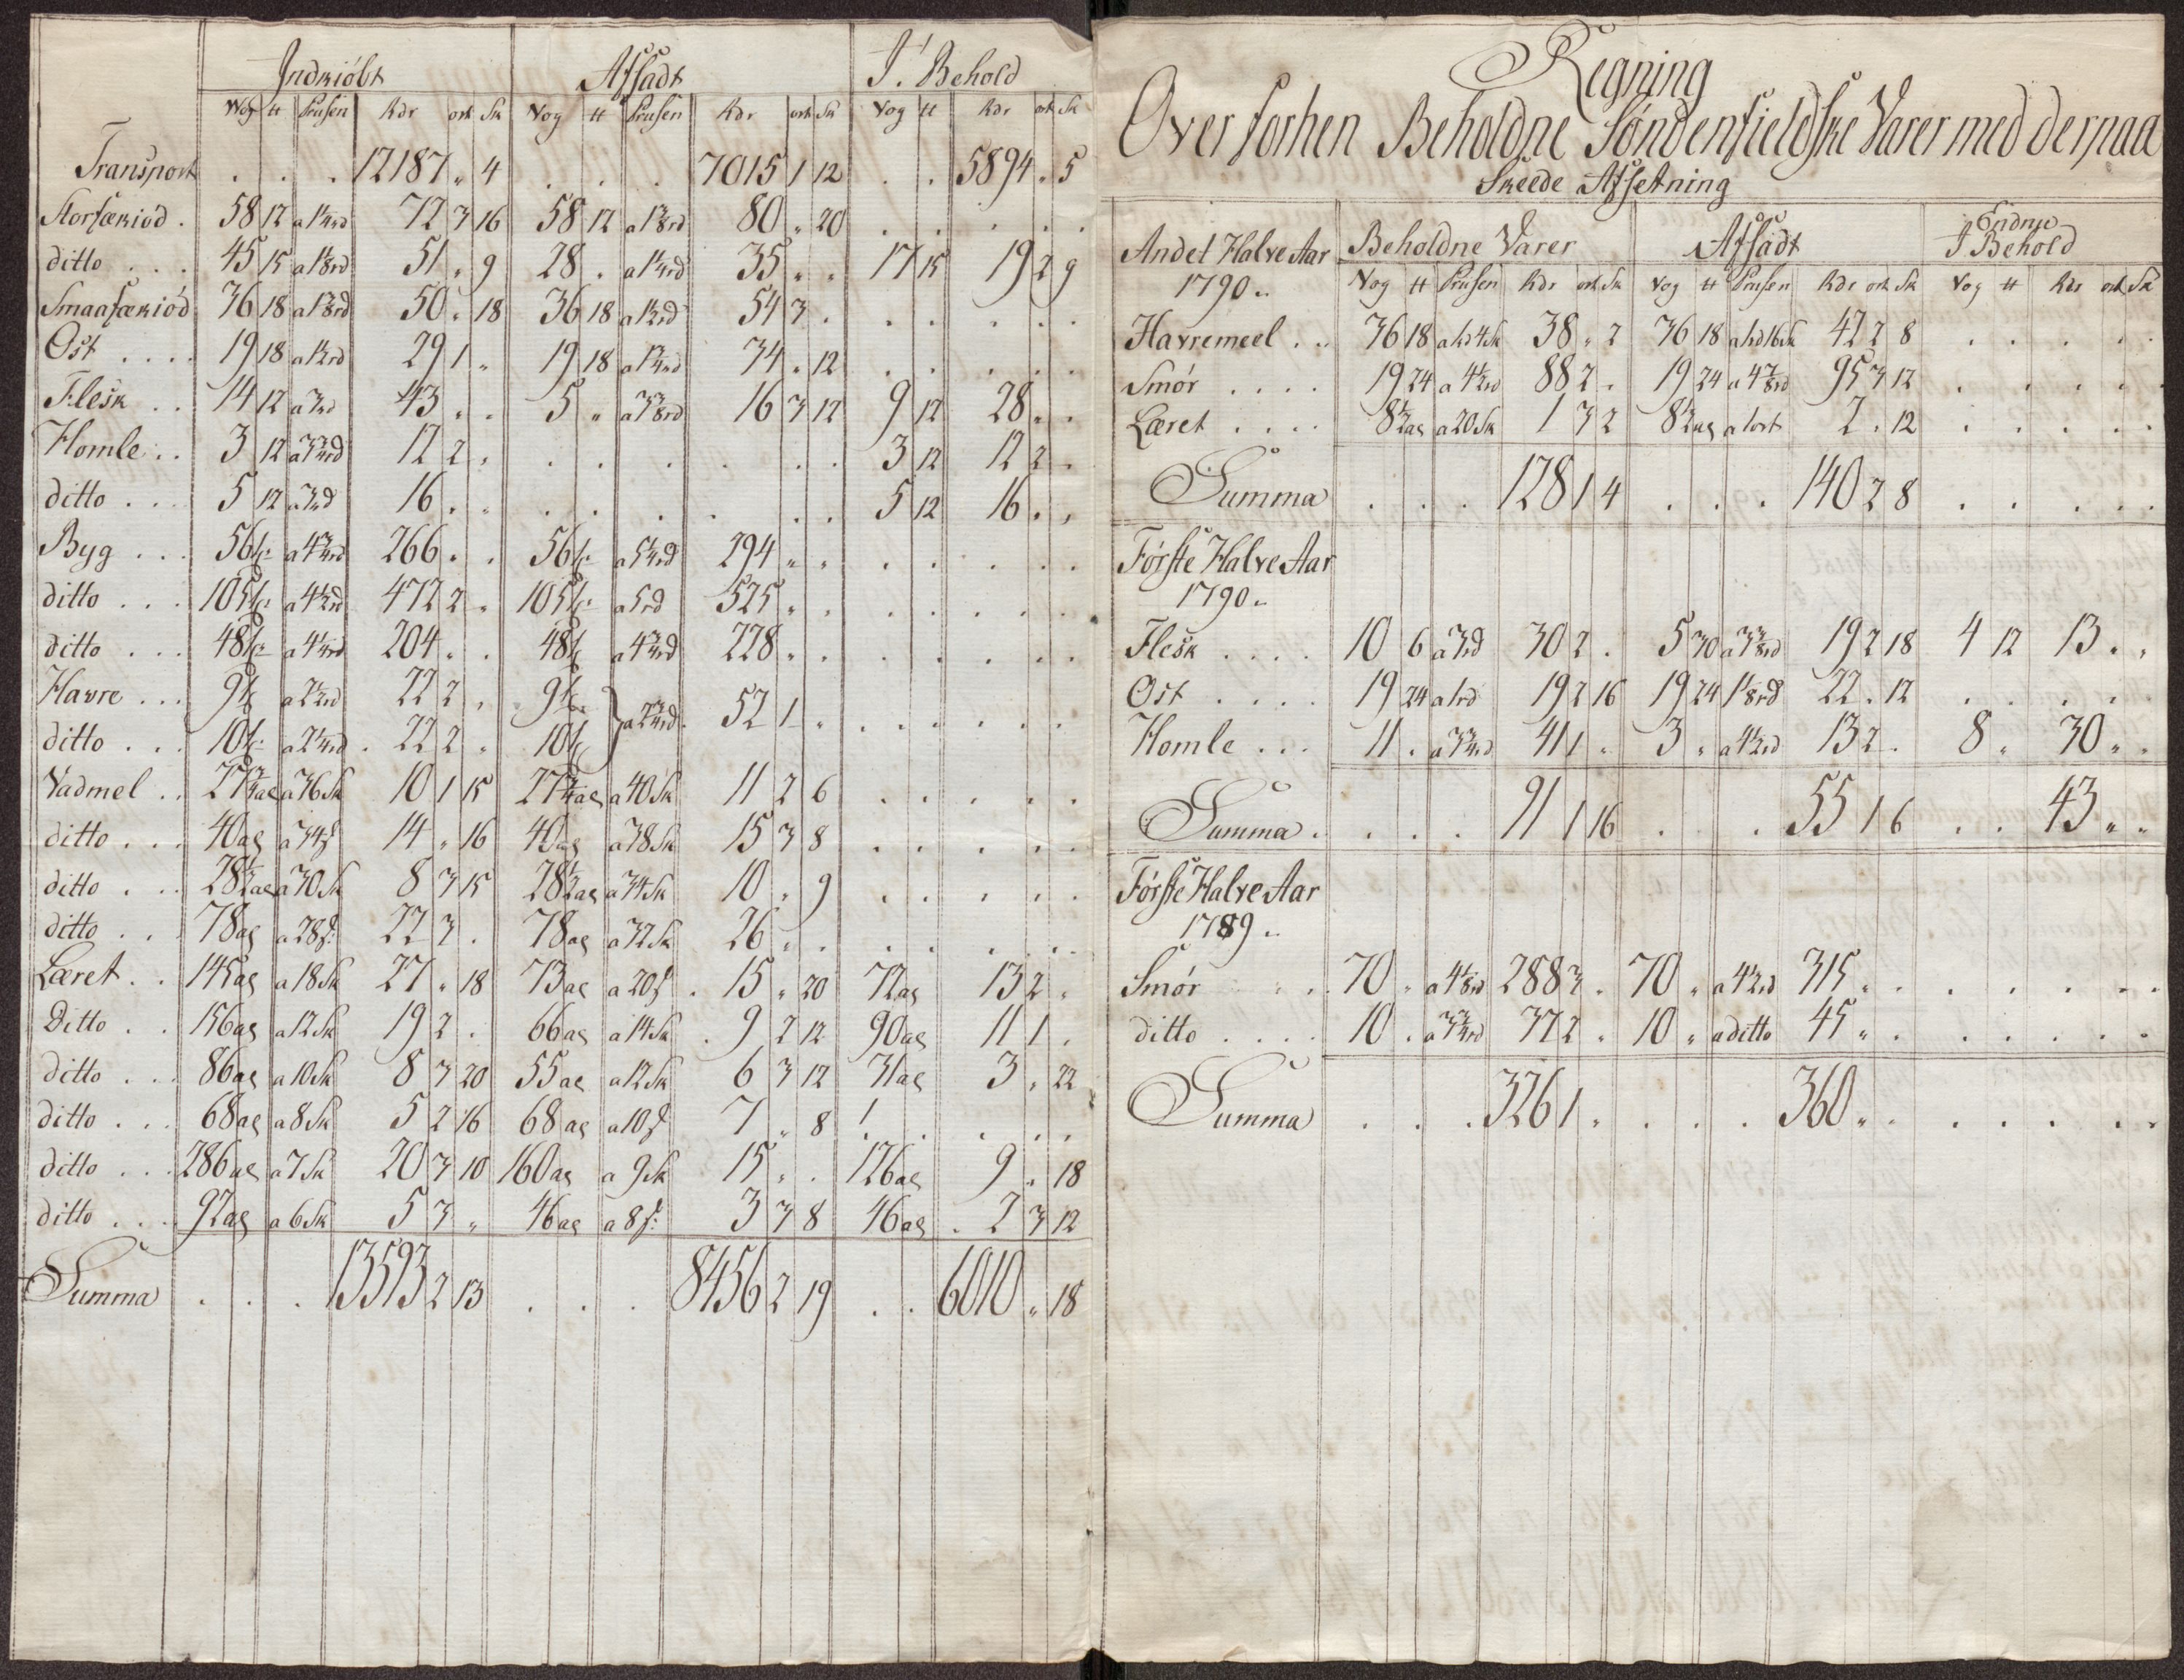 Indkiöbt Afsadt I Behold
Vog ℔ Prisen Rdr ort Sk Vog ℔ Prisen Rdr ort Sk Vog ℔ Rdr ort Sk
Transport . . . 12187 " 4 . . . 7015 1 12 . . 5894 " 5
Storfækiöd . 58 12 a 1¼rd 72 3 16 58 12 a 1⅜rd 80 " 20 . . . . .
ditto . . . 45 15 a 1⅛rd 51 " 9 28 . a 1¼rd 35 " " 17 15 19 2 9
Smaafækiöd 36 18 a 1⅜rd 50 " 18 36 18 a 1½rd 54 3 . . . . . .
Ost . . . . 19 18 a 1½rd 29 1 " 19 18 a 1¾rd 34 " 12 . . . . .
Flesk . . 14 12 a 3rd 43 " . 5 " a 3⅜rd 16 3 12 9 12 28 " .
Homle . . 3 12 a 3¾rd 12 2 " . . . . . . 3 12 12 2 "
ditto . . . 5 12 a 3rd 16 . " . . . . . . 5 12 16 . "
Byg . . . 56 a 4¾rd 266 . . 56 a 5¼rd 294 " " . . . . .
ditto . . . 105 a 4½rd 472 2 " 105 a 5rd 525 " " . . . . .
ditto . . . 48 a 4¼rd 204 . . 48 a 4¾rd 228 " . . . . . .
Havre . . . 9 a 2½rd 22 2 " 9 } a 2¾rd 52 1 " . . . . .
ditto . . . 10 a 2¼rd . 22 2 " 10
Vadmel . . 27¾ al a 36 Sk 10 1 15 27¾ al a 40 Sk 11 2 6 . . . . .
ditto . . . 40 al a 34 s 14 " 16 40 al a 38 Sk 15 3 8 . . . . .
ditto . . 28½ al a 30 Sk 8 3 15 28½ al a 34 Sk 10 " 9 . . . . .
ditto . . . 78 al a 28 s: 22 3 . 78 al a 32 Sk 26 " . . . . . .
Læret . . 145 al a 18 Sk 27 " 18 73 al a 20 s . 15 " 20 72 al 13 2 "
Ditto . . 156 al a 12 Sk 19 2 . 66 al a 14 Sk . 9 2 12 90 al 11 1 .
ditto . . . 86 al a 10 Sk 8 3 20 55 al a 12 Sk 6 3 12 31 al 3 " 22
ditto . . . 68 al a 8 Sk 5 2 16 68 al a 10 s 7 " 8 . . . . .
ditto . . . 286 al a 7 Sk 20 3 10 160 al a 9 Sk 15 " . 126 al 9 " 18
ditto . . . 92 al a 6 Sk 5 3 " 46 al a 8 s: 3 3 8 46 al . 2 3 12
Summa . . . 13593 2 13 . . . 8456 2 19 . . 6010 " 18
Regning
Over forhen Beholdne Søndenfieldske Varer med derpaa
Skeede Afsetning
Andet Halve Aar Beholdne Varer Afsadt Endnu I Behold
1790 " Vog ℔ Prisen Rdr ort Sk Vog ℔ Prisen Rdr ort Sk Vog ℔ Rdr ort Sk
Havremeel . . 36 18 a 1rd 4 Sk 38 " 2 36 18 a 1rd 16 Sk 42 2 8 . . . . .
Smör . . . . 19 24 a 4½rd 88 2 . 19 24 a 4⅞rd 95 3 12 . . . . .
Læret . . . . 8½ al a 20 Sk 1 3 2 8½ al a 1 ort 2 . 12 . . . . .
Summa . . . 128 1 4 . . . 140 2 8 . . . . .
Förste Halve Aar
1790 "
Flesk . . . . 10 6 a 3rd 30 2 . 5 30 a 3⅜rd 19 2 18 4 12 13 . "
Ost . . . . 19 24 a 1rd 19 2 16 19 24 1⅛rd 22 . 12 . . . . .
Homle . . . 11 . a 3¾rd 41 1 . 3 " a 4½rd 13 2 . 8 " 30 " .
Summa . . . . 91 1 16 . . . 55 1 6 . . 43 " "
Förste Halve Aar
1789 "
Smör . . . 70 . a 4⅛rd 288 3 . 70 " a 4½rd 315 " . . . . . .
ditto . . . . 10 . a 3¾rd 37 2 . 10 " a ditto 45 " . . . . . .
Summa . . . 326 1 " . . . 360 " . . . . . .